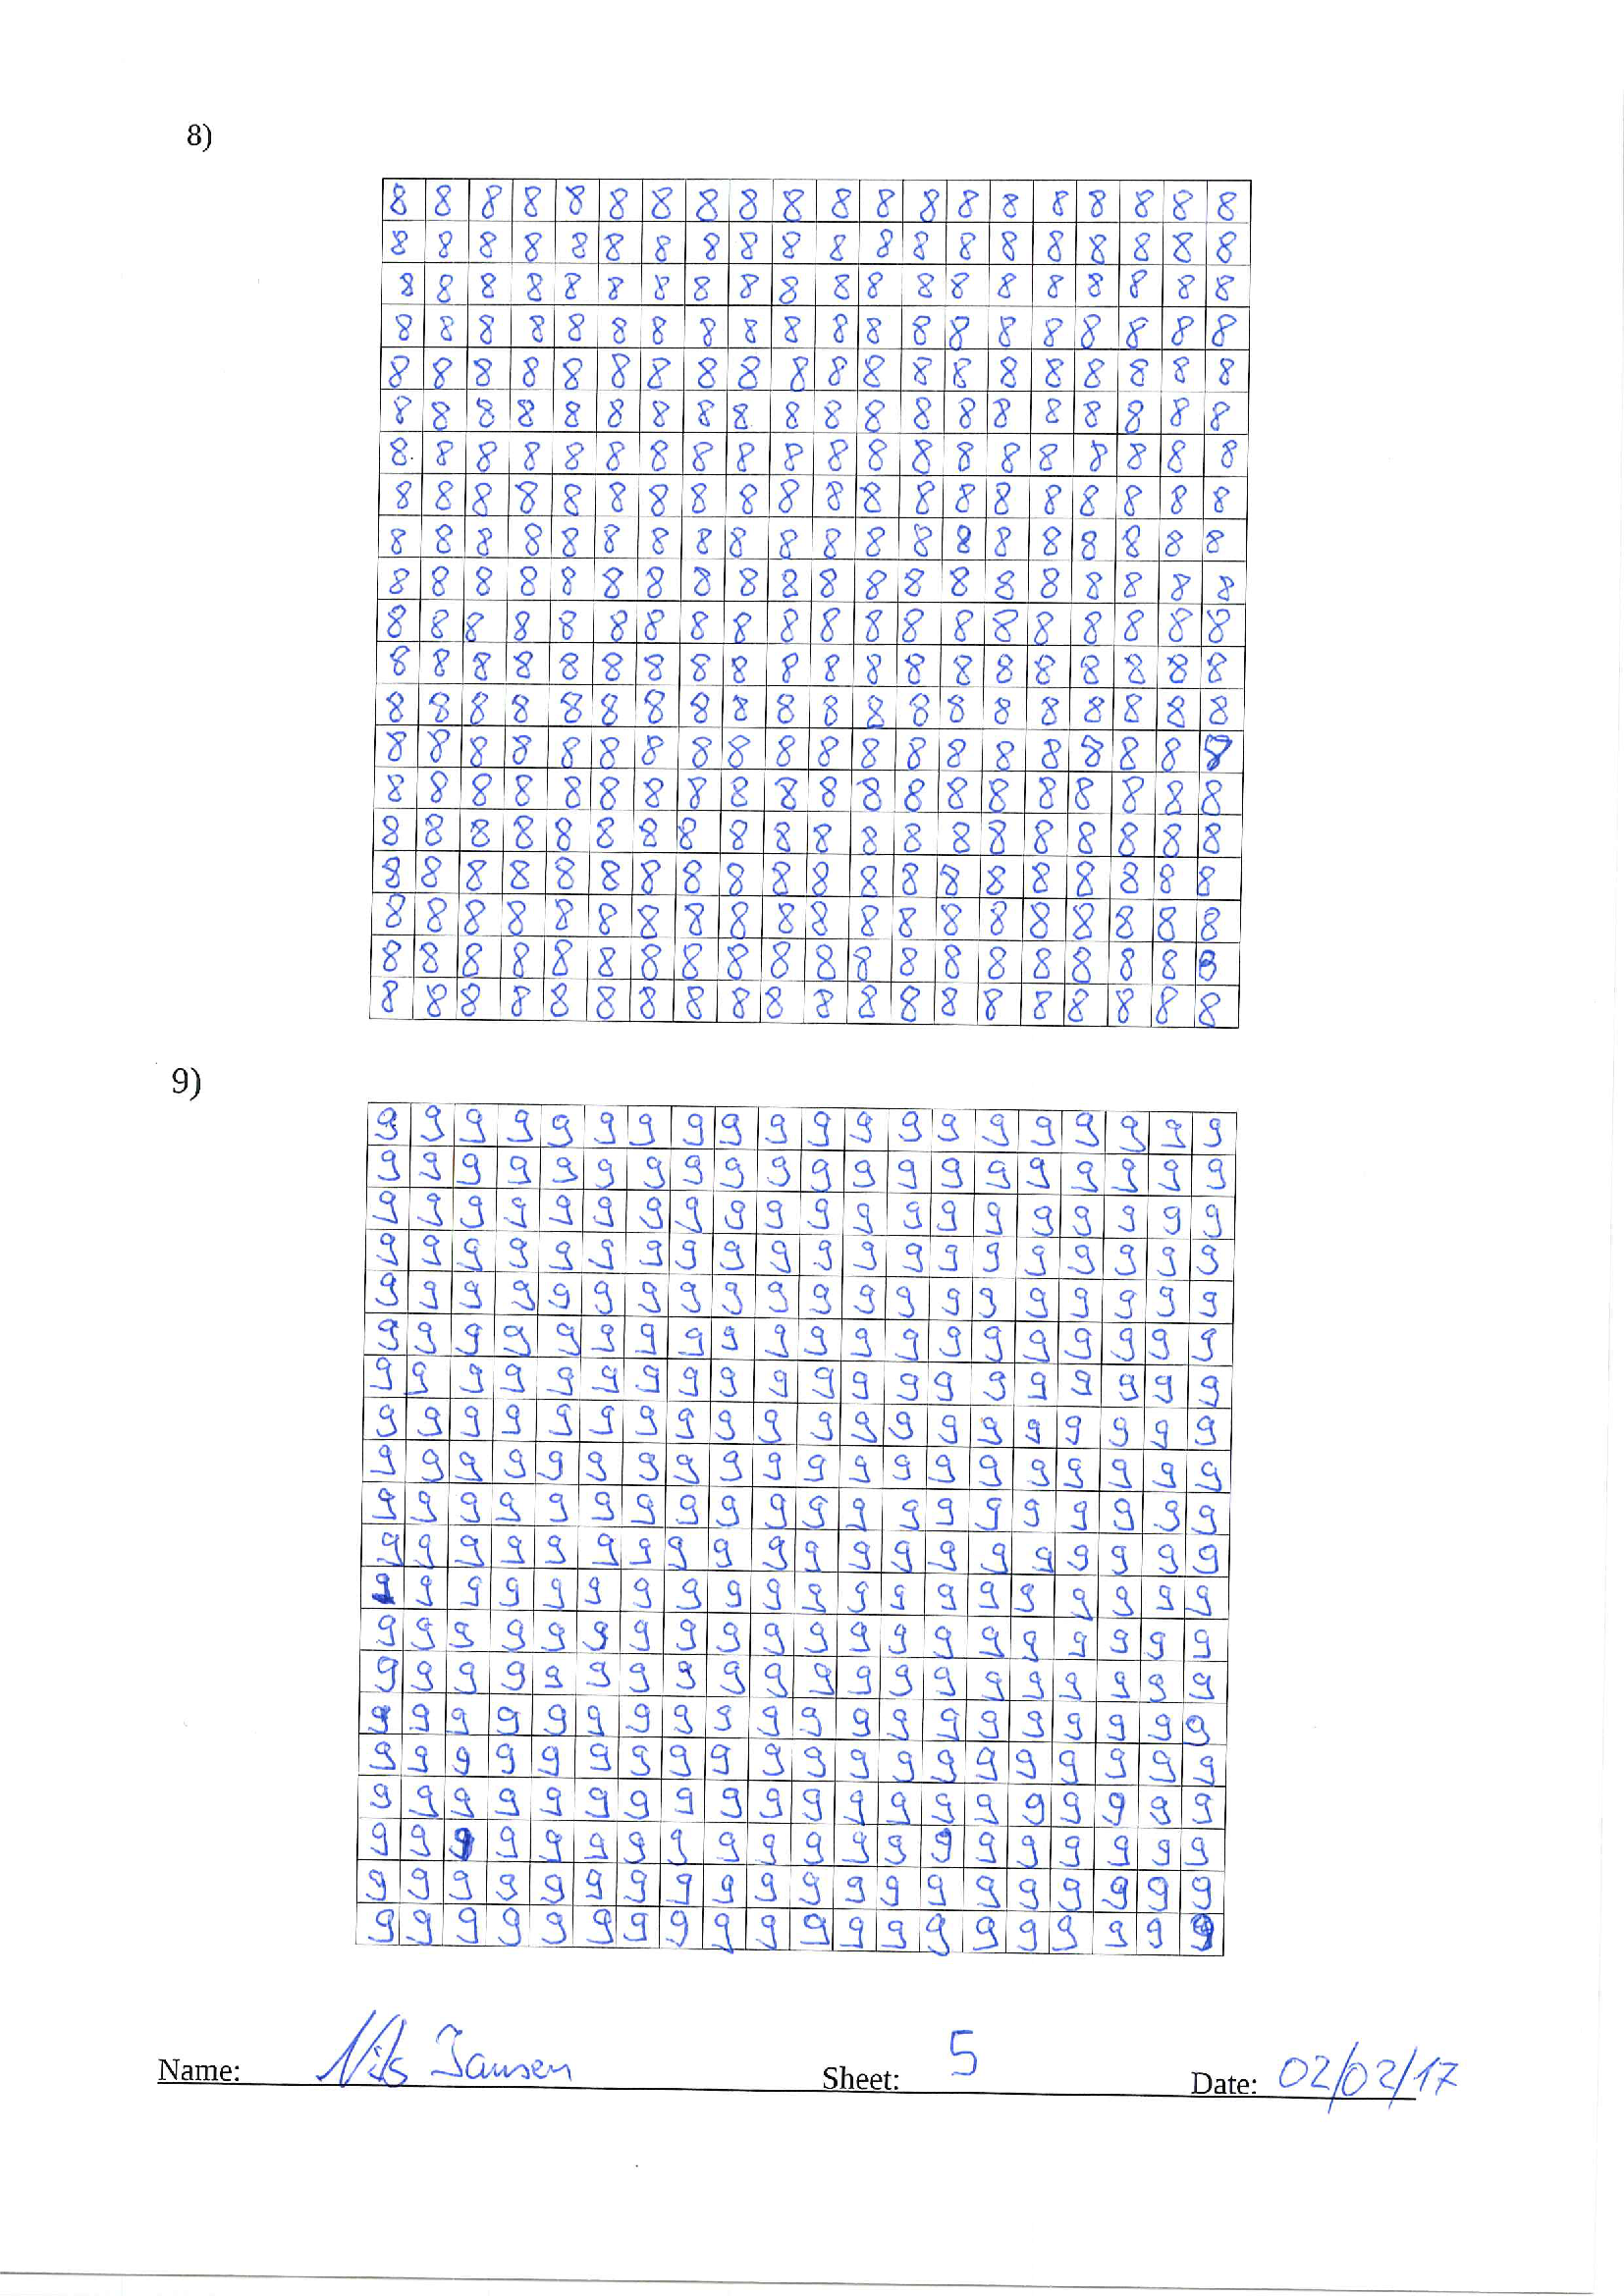 8)
8 8 8 8 8 8 8 8 8 8 8 8 8 8 8 8 8 8 8 8
8 8 8 8 8 8 8 8 8 8 8 8 8 8 8 8 8 8 8 8
8 8 8 8 8 8 8 8 8 8 8 8 8 8 8 8 8 8 8 8
8 8 8 8 8 8 8 8 8 8 8 8 8 8 8 8 8 8 8 8
8 8 8 8 8 8 8 8 8 8 8 8 8 8 8 8 8 8 8 8
8 8 8 8 8 8 8 8 8 8 8 8 8 8 8 8 8 8 8 8
8 8 8 8 8 8 8 8 8 8 8 8 8 8 8 8 8 8 8 8
8 8 8 8 8 8 8 8 8 8 8 8 8 8 8 8 8 8 8 8
8 8 8 8 8 8 8 8 8 8 8 8 8 8 8 8 8 8 8 8
8 8 8 8 8 8 8 8 8 8 8 8 8 8 8 8 8 8 8 8
8 8 8 8 8 8 8 8 8 8 8 8 8 8 8 8 8 8 8 8
8 8 8 8 8 8 8 8 8 8 8 8 8 8 8 8 8 8 8 8
8 8 8 8 8 8 8 8 8 8 8 8 8 8 8 8 8 8 8 8
8 8 8 8 8 8 8 8 8 8 8 8 8 8 8 8 8 8 8 8
8 8 8 8 8 8 8 8 8 8 8 8 8 8 8 8 8 8 8 8
8 8 8 8 8 8 8 8 8 8 8 8 8 8 8 8 8 8 8 8
8 8 8 8 8 8 8 8 8 8 8 8 8 8 8 8 8 8 8 8
8 8 8 8 8 8 8 8 8 8 8 8 8 8 8 8 8 8 8 8
8 8 8 8 8 8 8 8 8 8 8 8 8 8 8 8 8 8 8 8
8 8 8 8 8 8 8 8 8 8 8 8 8 8 8 8 8 8 8 8
9)
9 9 9 9 9 9 9 9 9 9 9 9 9 9 9 9 9 9 9 9
9 9 9 9 9 9 9 9 9 9 9 9 9 9 9 9 9 9 9 9
9 9 9 9 9 9 9 9 9 9 9 9 9 9 9 9 9 9 9 9
9 9 9 9 9 9 9 9 9 9 9 9 9 9 9 9 9 9 9 9
9 9 9 9 9 9 9 9 9 9 9 9 9 9 9 9 9 9 9 9
9 9 9 9 9 9 9 9 9 9 9 9 9 9 9 9 9 9 9 9
9 9 9 9 9 9 9 9 9 9 9 9 9 9 9 9 9 9 9 9
9 9 9 9 9 9 9 9 9 9 9 9 9 9 9 9 9 9 9 9
9 9 9 9 9 9 9 9 9 9 9 9 9 9 9 9 9 9 9 9
9 9 9 9 9 9 9 9 9 9 9 9 9 9 9 9 9 9 9 9
9 9 9 9 9 9 9 9 9 9 9 9 9 9 9 9 9 9 9 9
9 9 9 9 9 9 9 9 9 9 9 9 9 9 9 9 9 9 9 9
9 9 9 9 9 9 9 9 9 9 9 9 9 9 9 9 9 9 9 9
9 9 9 9 9 9 9 9 9 9 9 9 9 9 9 9 9 9 9 9
9 9 9 9 9 9 9 9 9 9 9 9 9 9 9 9 9 9 9 9
9 9 9 9 9 9 9 9 9 9 9 9 9 9 9 9 9 9 9 9
9 9 9 9 9 9 9 9 9 9 9 9 9 9 9 9 9 9 9 9
9 9 9 9 9 9 9 9 9 9 9 9 9 9 9 9 9 9 9 9
9 9 9 9 9 9 9 9 9 9 9 9 9 9 9 9 9 9 9 9
9 9 9 9 9 9 9 9 9 9 9 9 9 9 9 9 9 9 9 9
Name: Nils Jansen Sheet: 5 Date: 02/02/17